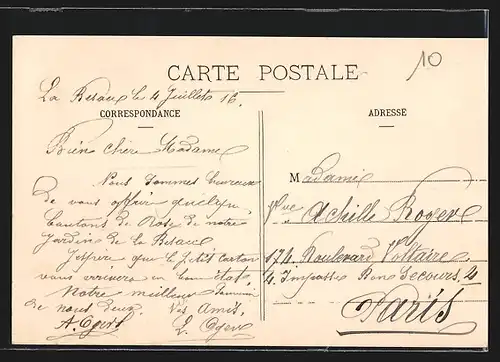 10
CARTE POSTALE
La Besace le 4 Juillet 16.
CORRESPONDANCE
ADRESSE
Bien chère Madame
Nous sommes heureux
de vous offrir quelques
boutons de Rose de notre
Jardin de la Besace
J'espère que le petit carton
vous arrivera en bon état.
Notre meilleur souvenir
de nous deux. Vos Amis.
A. Ogert L. Oger
Madame
Vve Achille Royer
174 Boulevard Voltaire
4. Impasse Bon Secours. 4
Paris